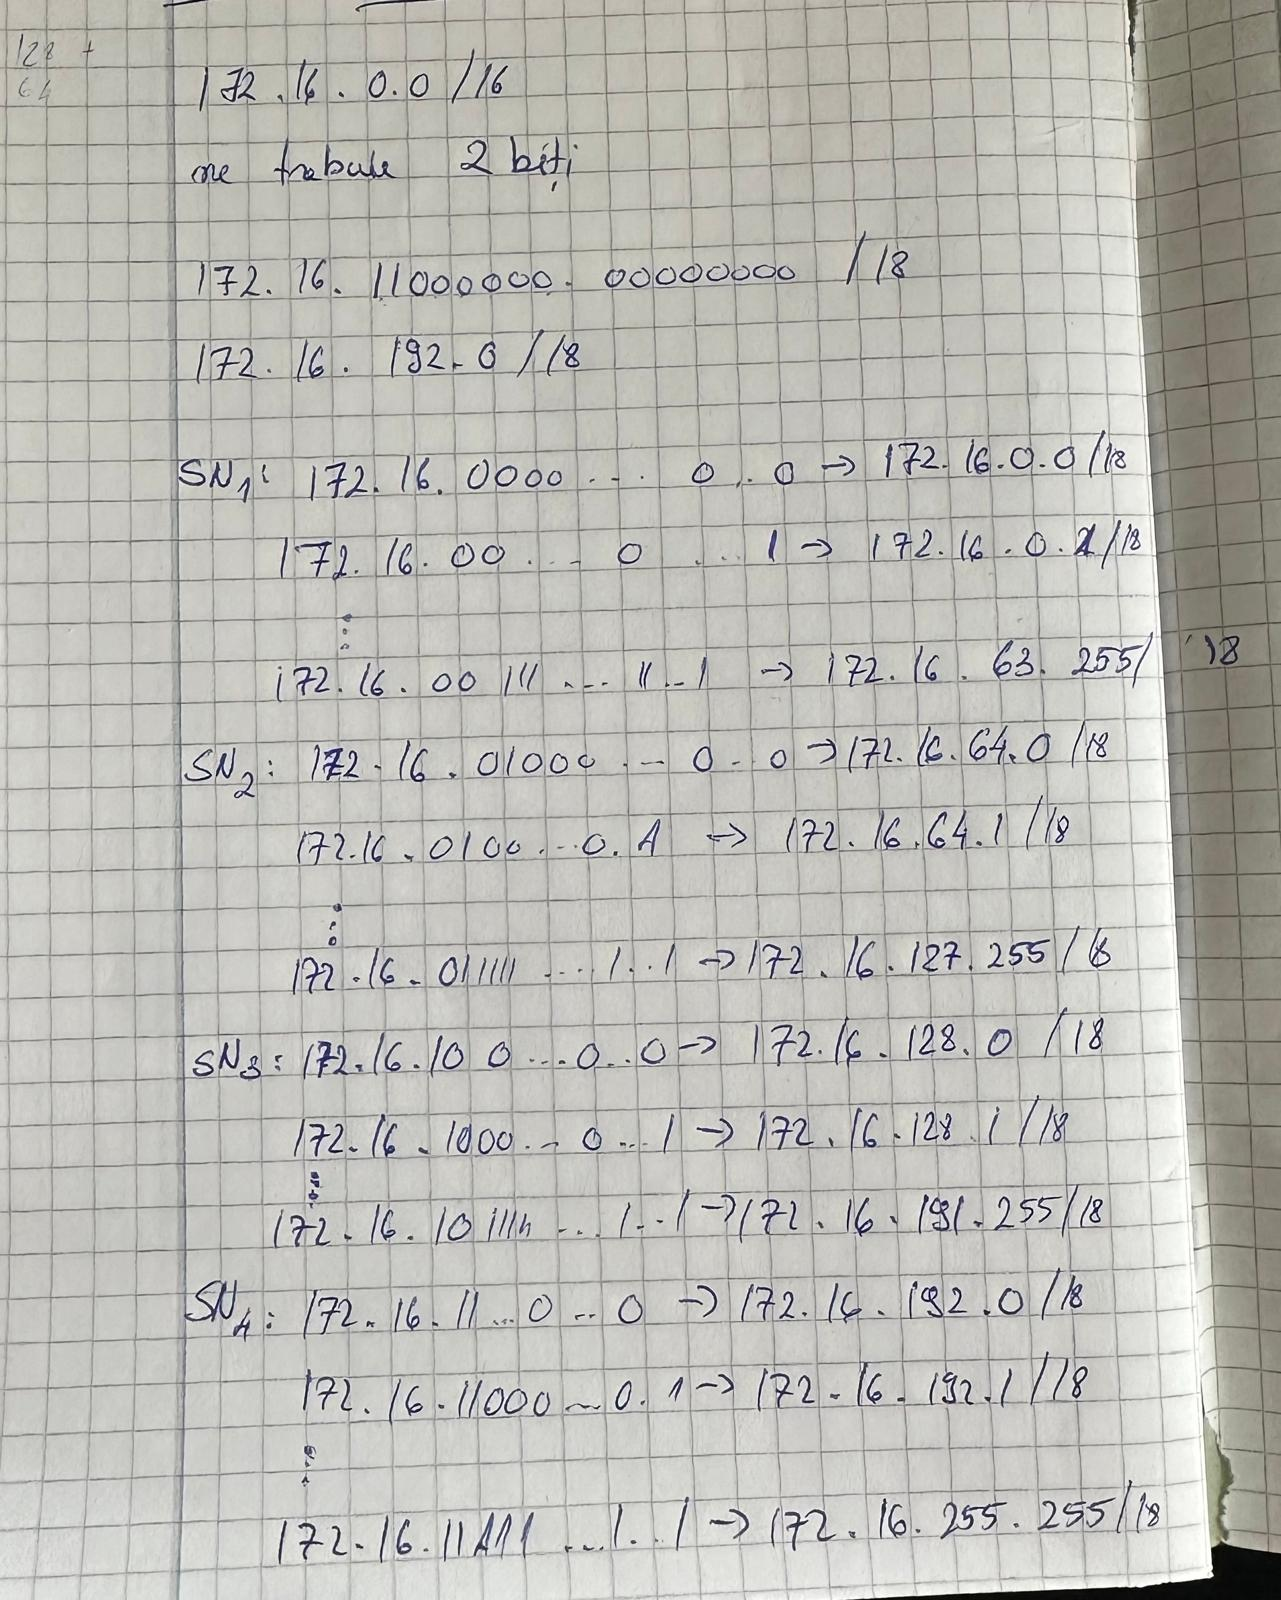 128 +
64
172.16.0.0/16
ne trebuie 2 biți
172.16.11000000.00000000 /18
172.16.192.0/18
SN1: 172.16.0000 ... 0..0 → 172.16.0.0/18
172.16.00 ... 0 ... 1 → 172.16.0.1/18
⋮
172.16.00111 ... 11..1 → 172.16.63.255/18
SN2: 172.16.01000 ... 0..0 → 172.16.64.0/18
172.16.0100...0.1 → 172.16.64.1/18
⋮
172.16.011111 ... 1..1 → 172.16.127.255/18
SN3: 172.16.100...0..0 → 172.16.128.0/18
172.16.1000...0...1 → 172.16.128.1/18
⋮
172.16.101111 ... 1..1 → 172.16.191.255/18
SN4: 172.16.11...0...0 → 172.16.192.0/18
172.16.11000...0.1 → 172.16.192.1/18
⋮
172.16.11111 ...1..1 → 172.16.255.255/18